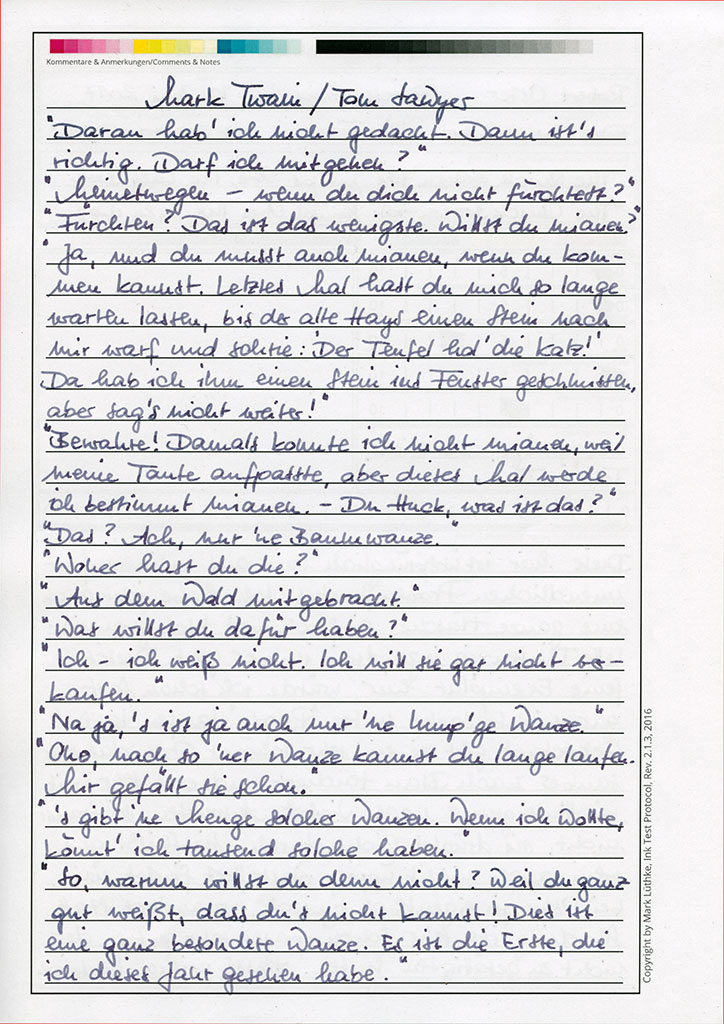 Kommentare & Anmerkungen/Comments & Notes
Mark Twain / Tom Sawyer
"Daran hab' ich nicht gedacht. Dann ist's
richtig. Darf ich mitgehen?"
"Meinetwegen – wenn du dich nicht fürchtest?"
"Fürchten? Das ist das wenigste. Willst du miauen?"
"Ja, und du musst auch miauen, wenn du kom-
men kannst. Letztes Mal hast du mich so lange
warten lassen, bis der alte Hays einen Stein nach
mir warf und schrie: 'Der Teufel hol' die Katz!'
Da hab ich ihm einen Stein ins Fenster geschmissen,
aber sag's nicht weiter!"
"Bewahre! Damals konnte ich nicht miauen, weil
meine Tante aufpasste, aber dieses Mal werde
ich bestimmt miauen. – Du Huck, was ist das?"
"Das? Ach, nur 'ne Baumwanze."
"Woher hast du die?"
"Aus dem Wald mitgebracht."
"Was willst du dafür haben?"
"Ich – ich weiß nicht. Ich will sie gar nicht ver-
kaufen."
"Na ja, 's ist ja auch nur 'ne lump'ge Wanze."
"Oho, nach so 'ner Wanze kannst du lange laufen.
Mir gefällt sie schon."
"'s gibt 'ne Menge solcher Wanzen. Wenn ich wollte,
könnt' ich tausend solche haben."
"So, warum willst du denn nicht? Weil du ganz
gut weißt, dass du's nicht kannst! Dies ist
eine ganz besondere Wanze. Es ist die Erste, die
ich dieses Jahr gesehen habe."
Copyright by Mark Lüthke, Ink Test Protocol, Rev. 2.1.3, 2016